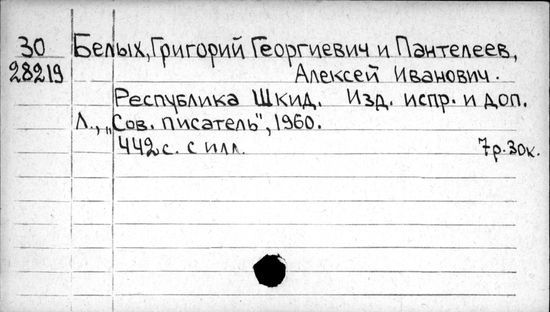 30 Белых, Григорий Георгиевич и Пантелеев,
28219 Алексей Иванович.
Республика Шкид. Изд. испр. и доп.
Л., „Сов. писатель", 1960.
442 с. с илл. 7р.30к.